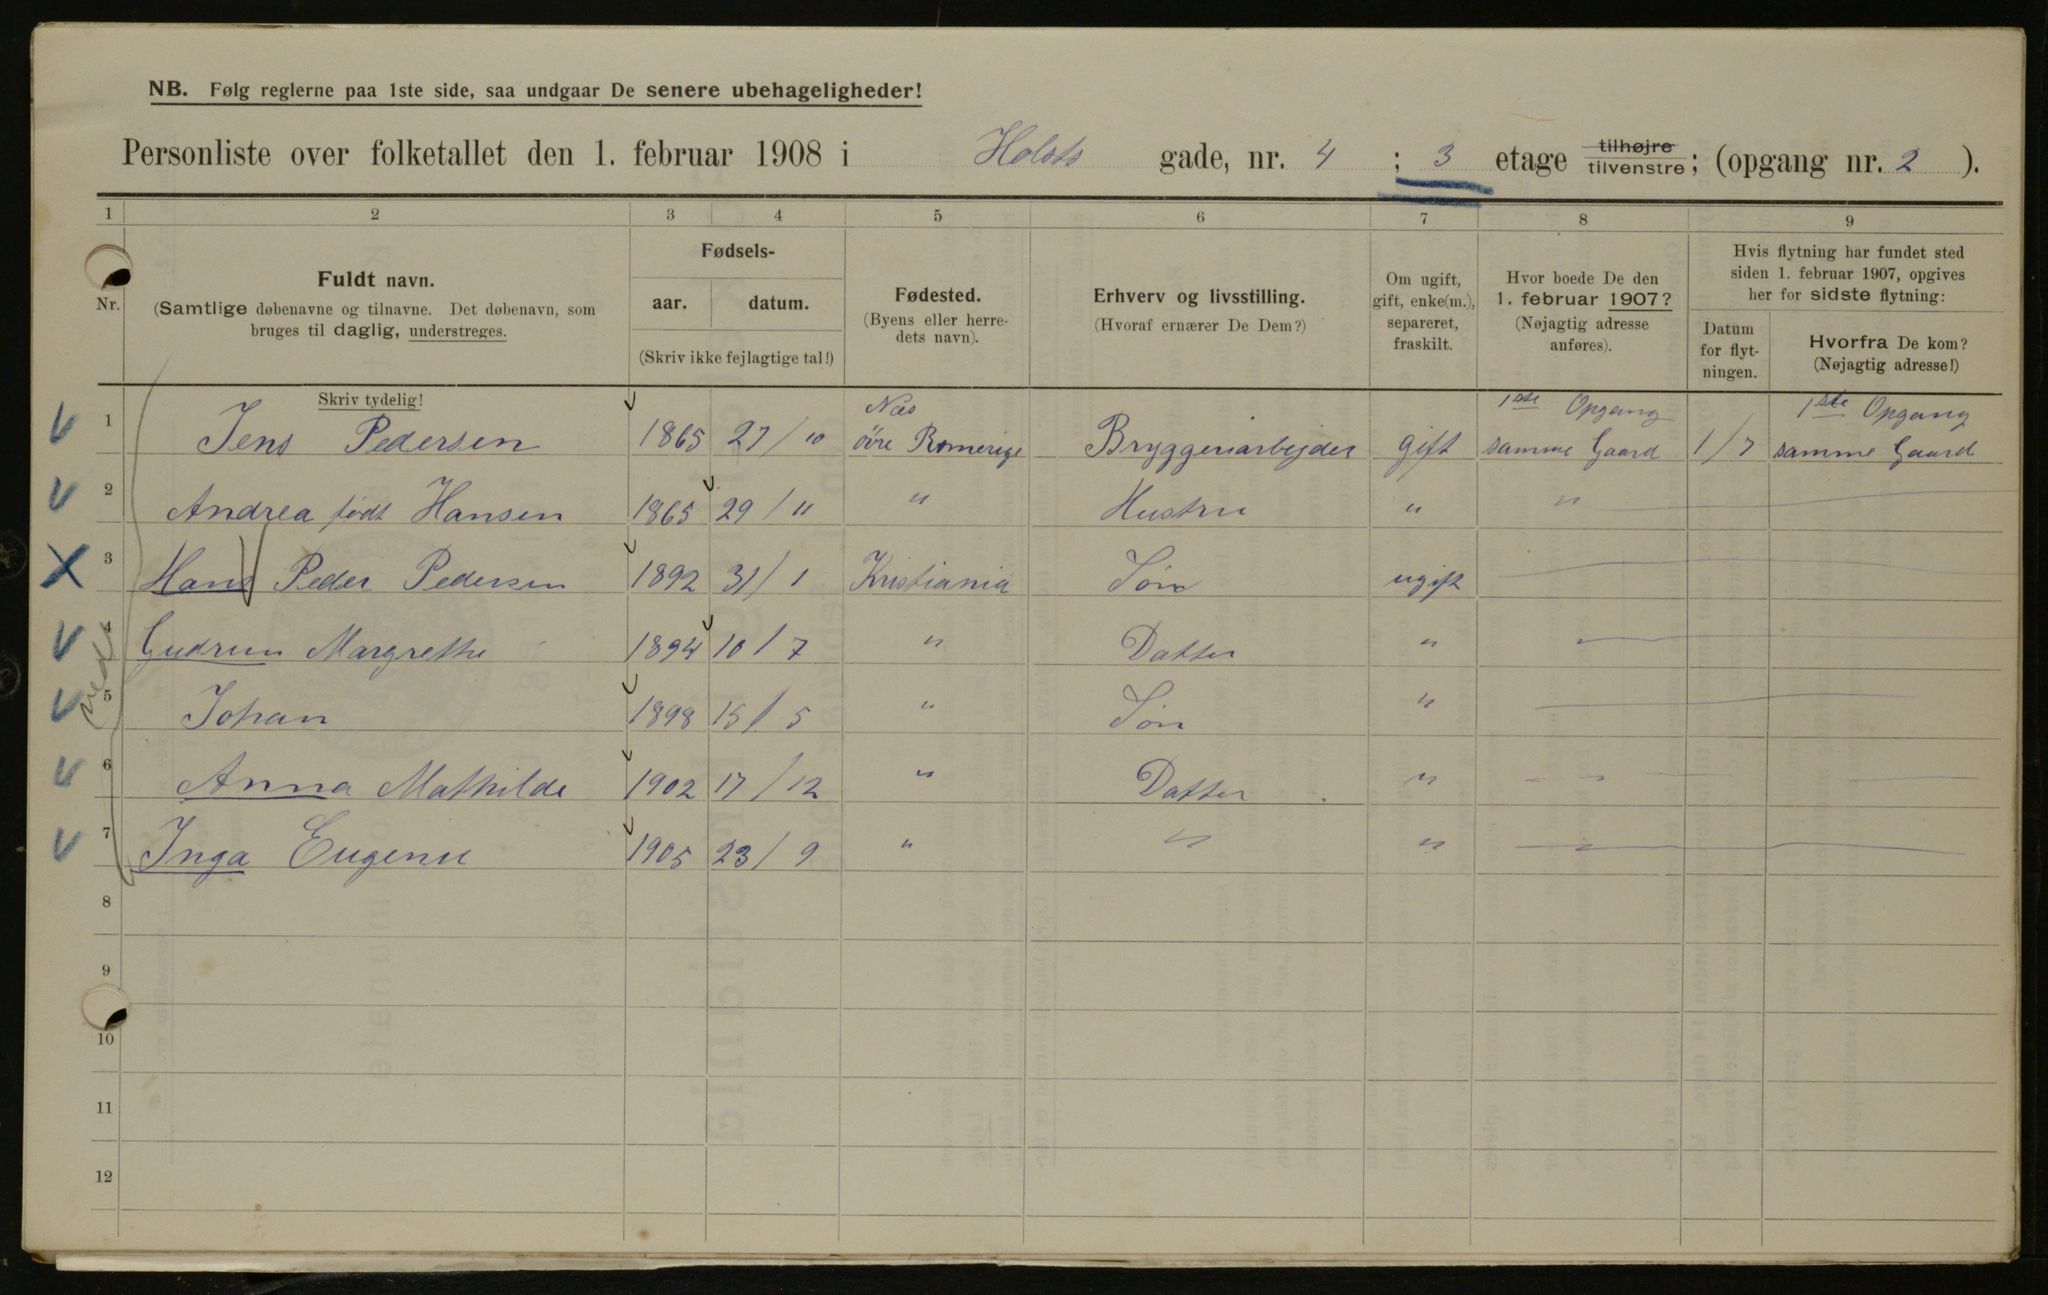 NB. Følg reglerne paa 1ste side, saa undgaar De senere ubehageligheder!
Personliste over folketallet den 1. februar 1908 i Holsts gade, nr. 4 ; 3 etage tilhøjre tilvenstre; (opgang nr. 2 ).
1 2 3 4 5 6 7 8 9
Nr.
Fuldt navn.
(Samtlige døbenavne og tilnavne. Det døbenavn, som
bruges til daglig, understreges.
Skriv tydelig!
Fødsels-
aar. datum.
(Skriv ikke fejlagtige tal!)
Fødested.
(Byens eller herre-
dets navn).
Erhverv og livsstilling.
(Hvoraf ernærer De Dem?)
Om ugift,
gift, enke(m.),
separeret,
fraskilt.
Hvor boede De den
1. februar 1907?
(Nøjagtig adresse
anføres).
Hvis flytning har fundet sted
siden 1. februar 1907, opgives
her for sidste flytning:
Datum
for flyt-
ningen.
Hvorfra De kom?
(Nøjagtig adresse!)
Næs 1ste Opgang 1ste Opgang
1 Jens Pedersen 1865 27/10 övre Romerige Bryggeriarbejder gift samme Gaard 1/7 samme Gaard
2 Andrea födt Hansen 1865 29/11 " Hustru " "
3 Hans Peder Pedersen 1892 31/1 Kristiania Sön ugift
4 Gudrun Margrethe 1894 10/7 " Datter " "
5 Johan 1898 15/5 " Sön "
6 Anna Mathilde 1902 17/12 " Datter " "
7 Inga Eugenie 1905 23/9 " " " "
8
9
10
11
12